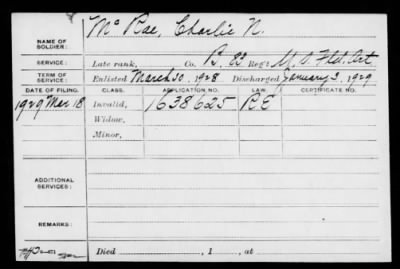 NAME OF SOLDIER: McRae, Charlie N.
SERVICE: Late rank, Co. B, 82 Reg't U.S. Fld. Art
TERM OF SERVICE: Enlisted March 30, 1928 Discharged January 3, 1929
DATE OF FILING. CLASS. APPLICATION NO. LAW. CERTIFICATE NO.
1929 Mar 18 Invalid, 1638625 RE
Widow,
Minor,
ADDITIONAL SERVICES:
REMARKS:
Died , 1 , at